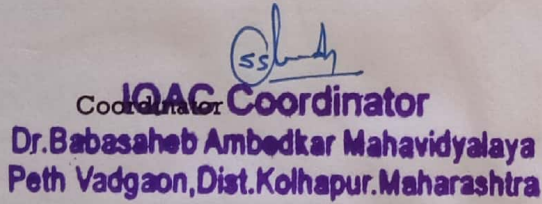 Coordinator
IQAC Coordinator
Dr.Babasaheb Ambedkar Mahavidyalaya
Peth Vadgaon,Dist.Kolhapur.Maharashtra